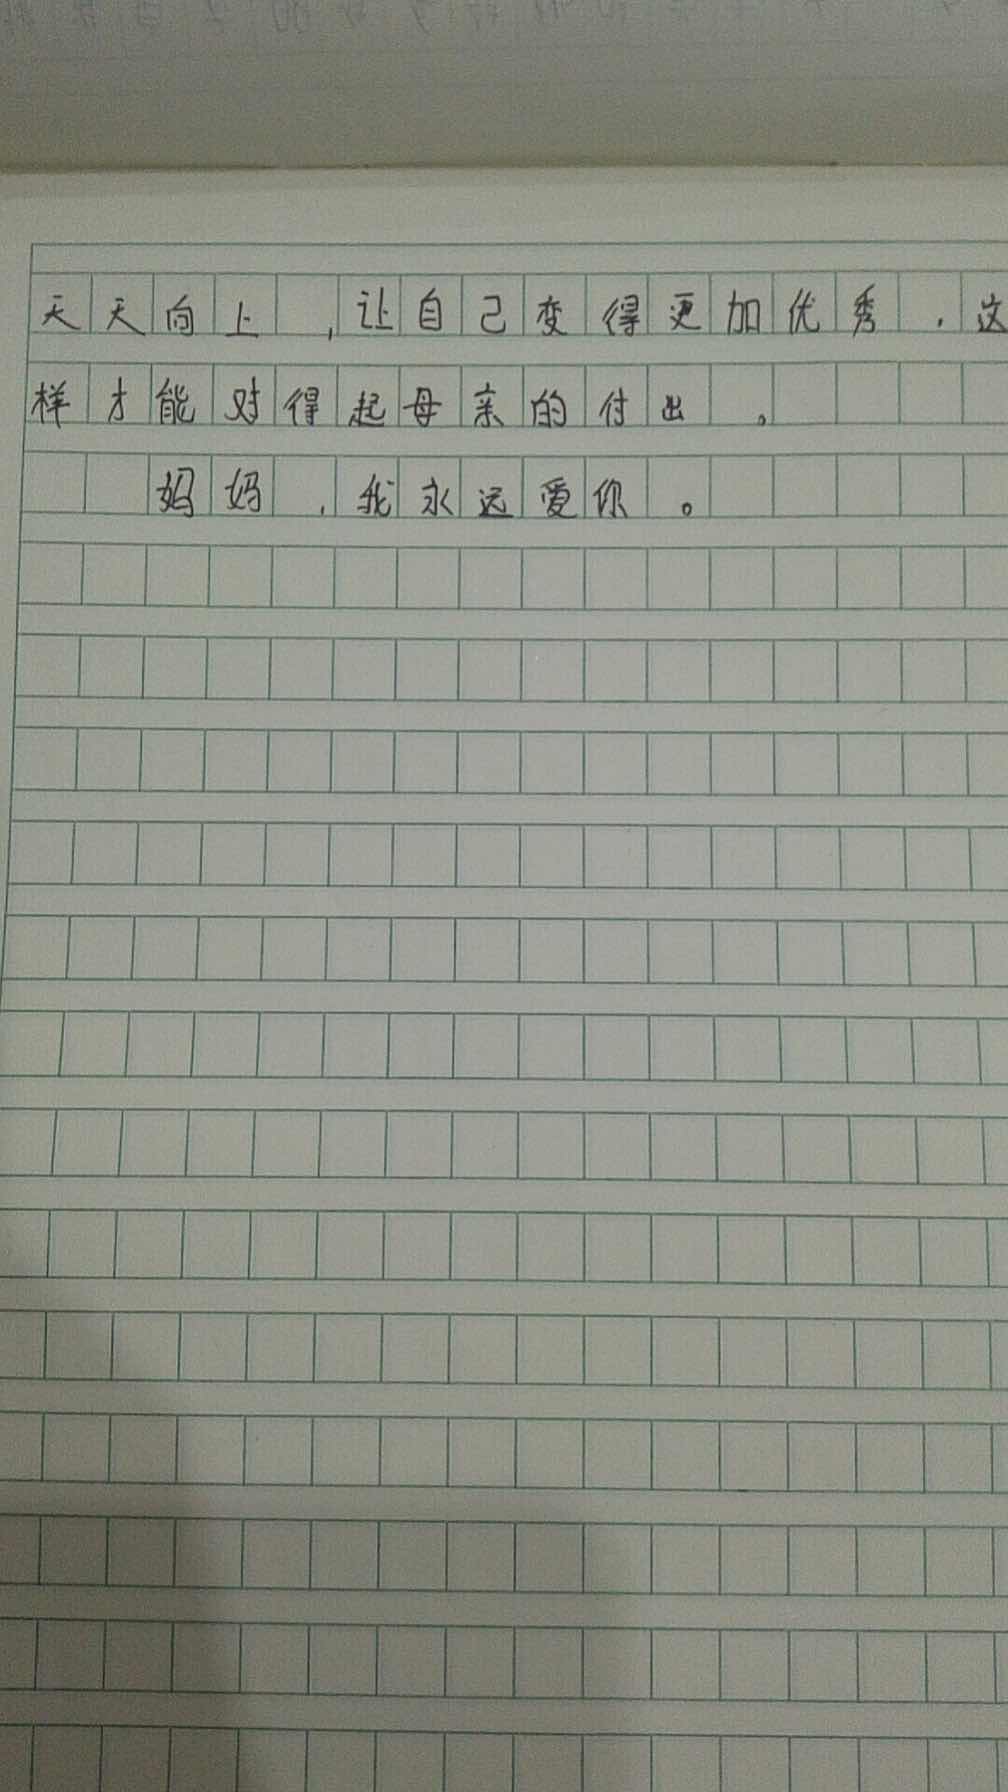 天天向上,让自己变得更加优秀,这
样才能对得起母亲的付出。
妈妈,我永远爱你。